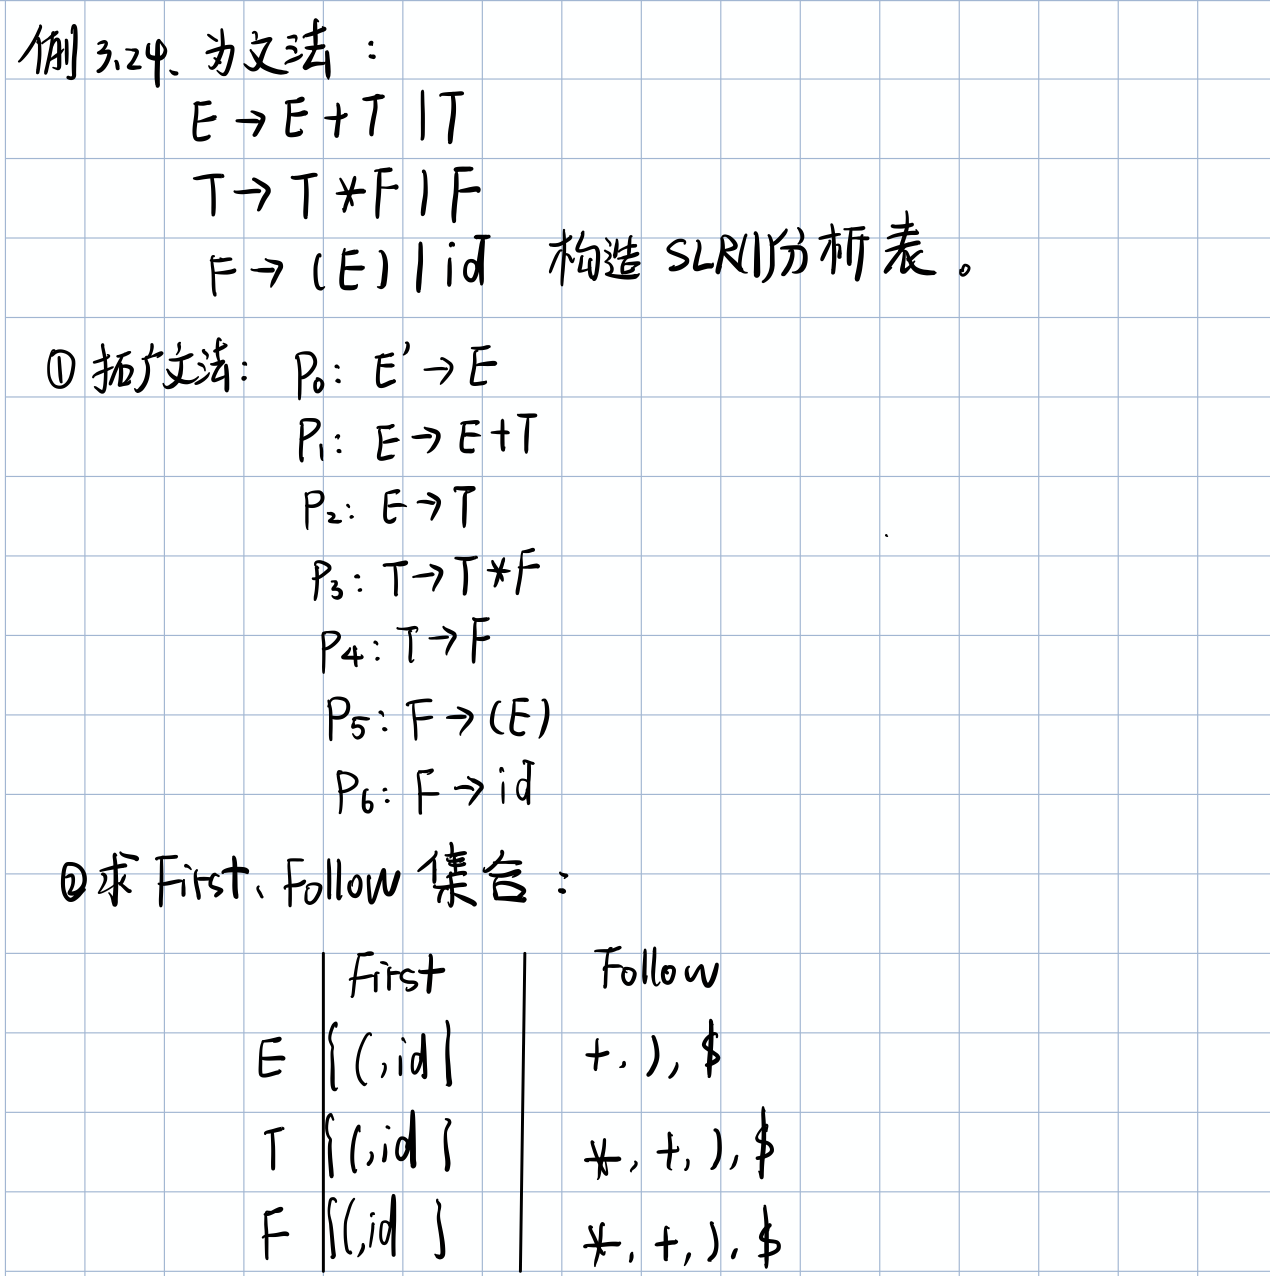 例3.24、为文法：
E → E + T | T
T → T * F | F
F → (E) | id 构造 SLR(1)分析表。
① 拓广文法: P₀: E' → E
P₁: E → E+T
P₂: E → T
P₃: T → T*F
P₄: T → F
P₅: F → (E)
P₆: F → id
② 求 First、Follow 集合：
First Follow
E {(,id} +, ), $
T {(,id} *, +, ), $
F {(,id} *, +, ), $